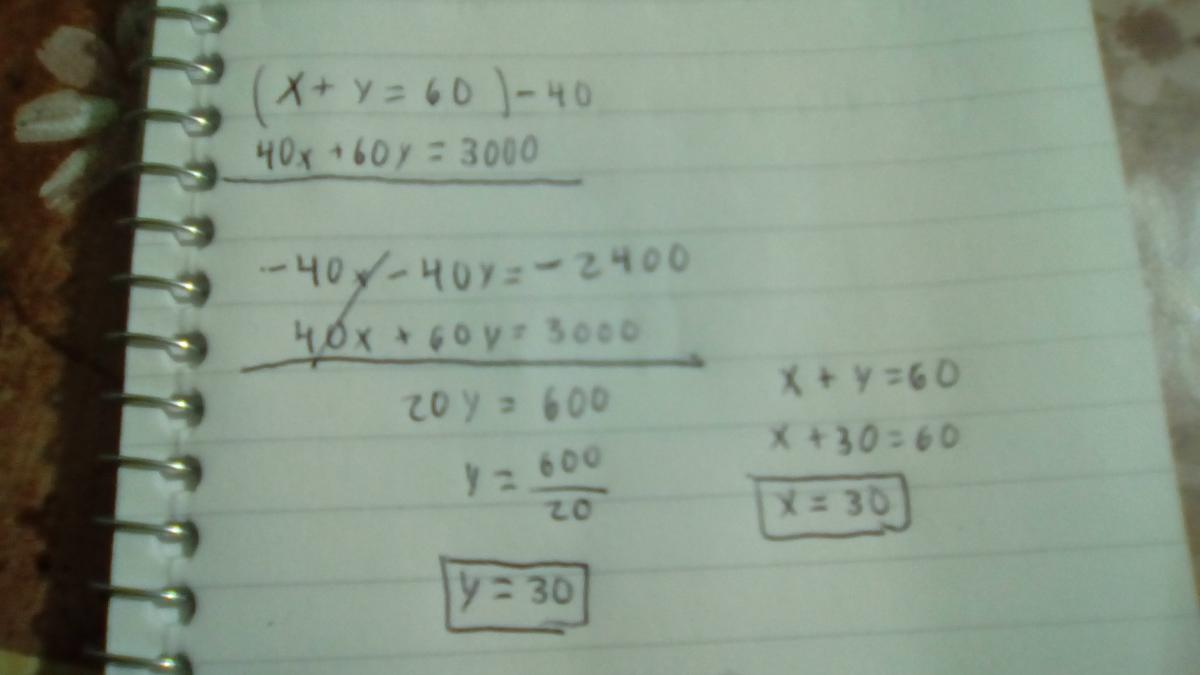 (X + Y = 60) - 40
40x + 60y = 3000
-40x - 40y = -2400
40x + 60y = 3000
20y = 600
y = 600/20
y = 30
x + y = 60
x + 30 = 60
x = 30